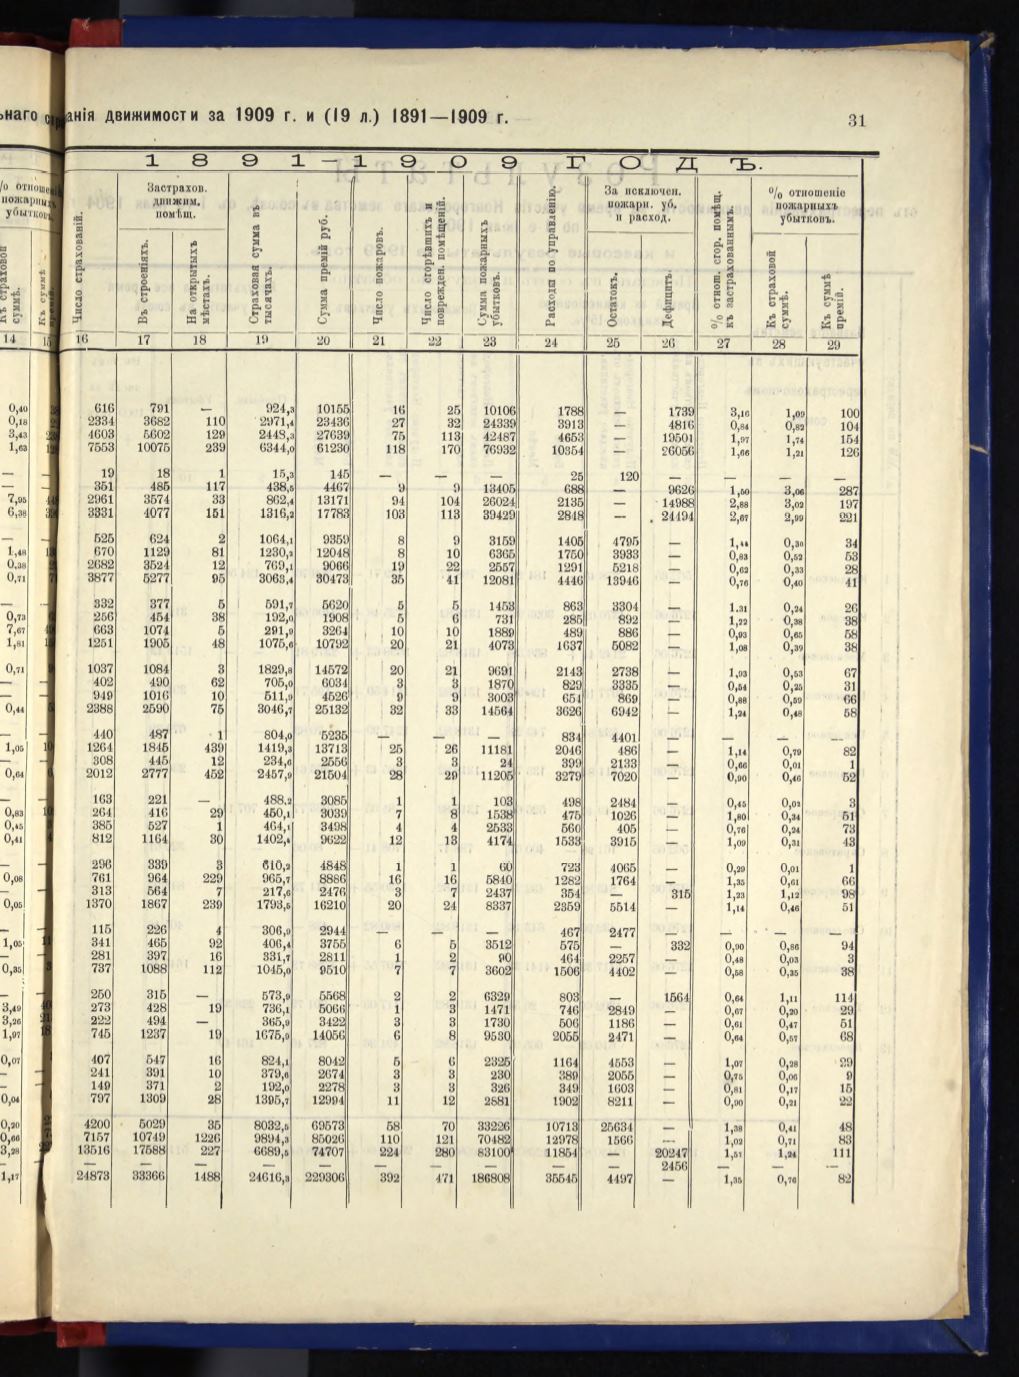 анія движимости за 1909 г. и (19 л.) 1891—1909 г.
31
1891—1909 ГОДЪ.
Число страхованій. Застрахов. движим. помѣщ. Въ строеніяхъ. На открытыхъ мѣстахъ. Страховая сумма въ тысячахъ. Сумма премій руб. Число пожаровъ. Число сгорѣвшихъ и поврежден. помѣщеній. Сумма пожарныхъ убытковъ. Расходы по управленію. За исключен. пожарн. уб. и расход. Остатокъ. Дефицитъ. % отнош. сгор. помѣщ. къ застрахованнымъ. % отношеніе пожарныхъ убытковъ. Къ страховой суммѣ. Къ суммѣ премій.
14 15 16 17 18 19 20 21 22 23 24 25 26 27 28 29
0,40 616 791 — 924,3 10155 16 25 10106 1788 — 1739 3,16 1,09 100
0,18 2334 3682 110 2971,4 23436 27 32 24339 3913 — 4816 0,84 0,82 104
3,43 4603 5602 129 2448,3 27639 75 113 42487 4653 — 19501 1,97 1,74 154
1,63 7553 10075 239 6344,0 61230 118 170 76932 10354 — 26056 1,66 1,21 126
— 19 18 1 15,3 145 — — — 25 120 — — — —
— 351 485 117 438,5 4467 9 9 13405 688 — 9626 1,50 3,06 287
7,95 2961 3574 33 862,4 13171 94 104 26024 2135 — 14988 2,88 3,02 197
6,38 3331 4077 151 1316,2 17783 103 113 39429 2848 — 24494 2,67 2,99 221
— 525 624 2 1064,1 9359 8 9 3159 1405 4795 — 1,44 0,30 34
1,48 670 1129 81 1230,2 12048 8 10 6365 1750 3933 — 0,83 0,52 53
0,38 2682 3524 12 769,1 9066 19 22 2557 1291 5218 — 0,62 0,33 28
0,71 3877 5277 95 3063,4 30473 35 41 12081 4446 13946 — 0,76 0,40 41
— 332 377 5 591,7 5620 5 5 1453 863 3304 — 1,31 0,24 26
0,73 256 454 38 192,0 1908 5 6 731 285 892 — 1,22 0,38 38
7,67 663 1074 5 291,9 3264 10 10 1889 489 886 — 0,93 0,65 58
1,81 1251 1905 48 1075,6 10792 20 21 4073 1637 5082 — 1,08 0,39 38
0,71 1037 1084 3 1829,8 14572 20 21 9691 2143 2738 — 1,93 0,53 67
— 402 490 62 705,0 6034 3 3 1870 829 3335 — 0,54 0,25 31
— 949 1016 10 511,9 4526 9 9 3003 654 869 — 0,88 0,59 66
0,44 2388 2590 75 3046,7 25132 32 33 14564 3626 6942 — 1,24 0,48 58
— 440 487 1 804,0 5235 — — — 834 4401 — — — —
1,05 1264 1845 439 1419,3 13713 25 26 11181 2046 486 — 1,14 0,79 82
— 308 445 12 234,6 2556 3 3 24 399 2133 — 0,66 0,01 1
0,64 2012 2777 452 2457,9 21504 28 29 11205 3279 7020 — 0,90 0,46 52
— 163 221 — 488,2 3085 1 1 103 498 2484 — 0,45 0,02 3
0,83 264 416 29 450,1 3039 7 8 1538 475 1026 — 1,80 0,34 51
0,45 385 527 1 464,1 3498 4 4 2533 560 405 — 0,76 0,24 73
0,41 812 1164 30 1402,4 9622 12 13 4174 1533 3915 — 1,09 0,31 43
— 296 339 3 610,2 4848 1 1 60 723 4065 — 0,29 0,01 1
0,08 761 964 229 965,7 8886 16 16 5840 1282 1764 — 1,35 0,61 66
— 313 564 7 217,6 2476 3 7 2437 354 — 315 1,23 1,12 98
0,05 1370 1867 239 1793,5 16210 20 24 8337 2359 5514 — 1,14 0,46 51
— 115 226 4 306,9 2944 — — — 467 2477 — — — —
1,05 341 465 92 406,4 3755 6 5 3512 575 — 332 0,90 0,86 94
— 281 397 16 331,7 2811 1 2 90 464 2257 — 0,48 0,03 3
0,35 737 1088 112 1045,0 9510 7 7 3602 1506 4402 — 0,58 0,35 38
— 250 315 — 573,9 5568 2 2 6329 803 — 1564 0,64 1,11 114
3,49 273 428 19 736,1 5066 1 3 1471 746 2849 — 0,67 0,20 29
3,26 222 494 — 365,9 3422 3 3 1730 506 1186 — 0,61 0,47 51
1,97 745 1237 19 1675,9 14056 6 8 9530 2055 2471 — 0,64 0,57 68
0,07 407 547 16 824,1 8042 5 6 2325 1164 4553 — 1,07 0,28 29
— 241 391 10 379,6 2674 3 3 230 389 2055 — 0,75 0,06 9
— 149 371 2 192,0 2278 3 3 326 349 1603 — 0,81 0,17 15
0,04 797 1309 28 1395,7 12994 11 12 2881 1902 8211 — 0,90 0,21 22
0,20 4200 5029 35 8032,5 69573 58 70 33226 10713 25634 — 1,38 0,41 48
0,66 7157 10749 1226 9894,3 85026 110 121 70482 12978 1566 — 1,02 0,71 83
3,28 13516 17588 227 6689,5 74707 224 280 83100 11854 — 20247 1,57 1,24 111
— — — — — — — — — — — 2456 — — —
1,17 24873 33366 1488 24616,3 229306 392 471 186808 35545 4497 — 1,35 0,76 82